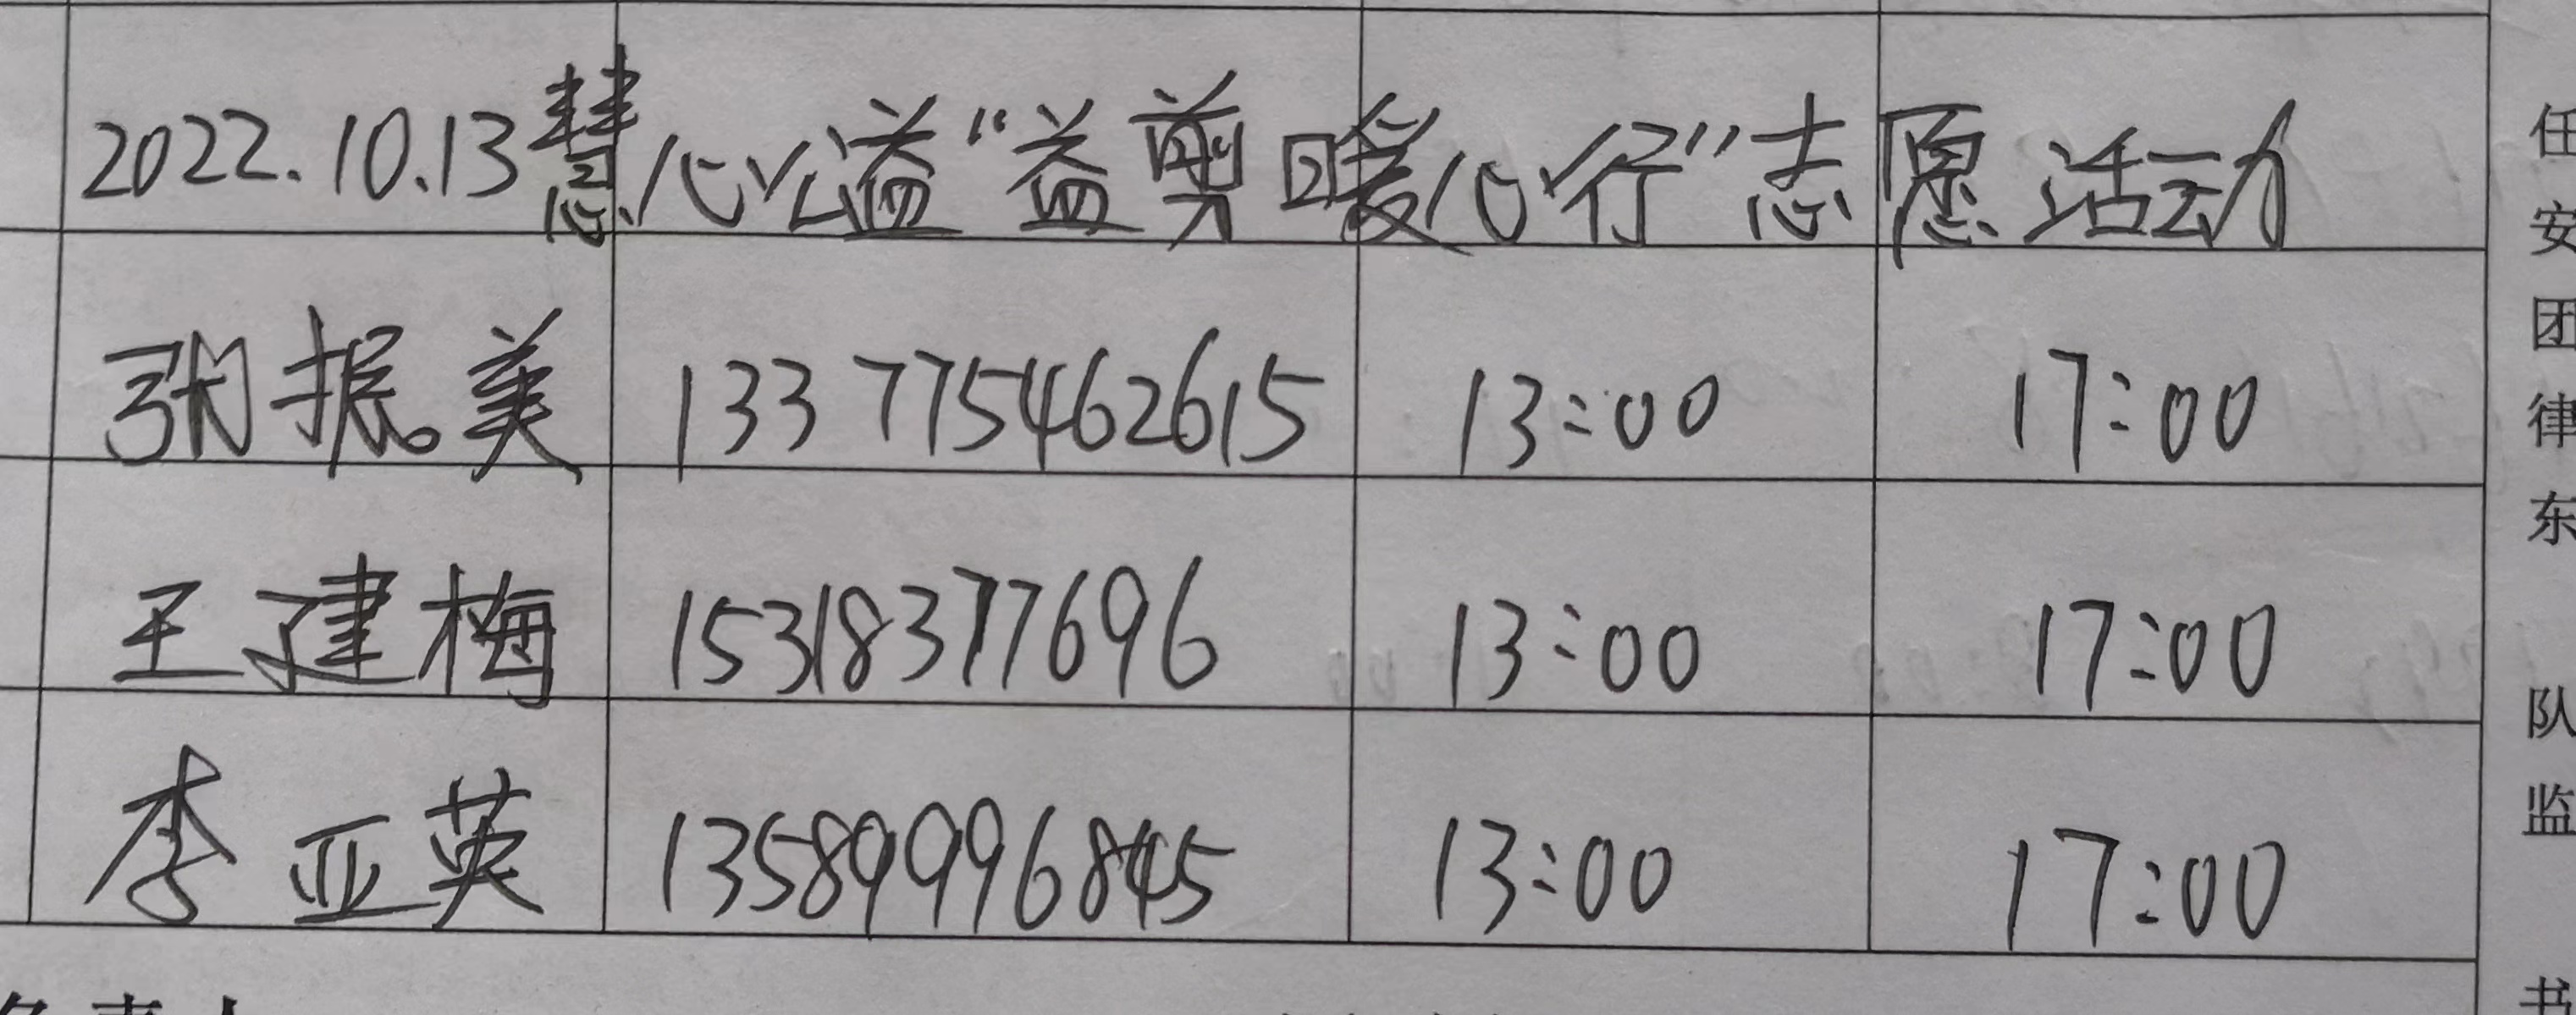 2022.10.13慧心公益“益剪暖心行”志愿活动
张振美 133775462615 13:00 17:00
王建梅 15318377696 13:00 17:00
李亚英 13589996845 13:00 17:00
任
安
团
律
东
队
监
书